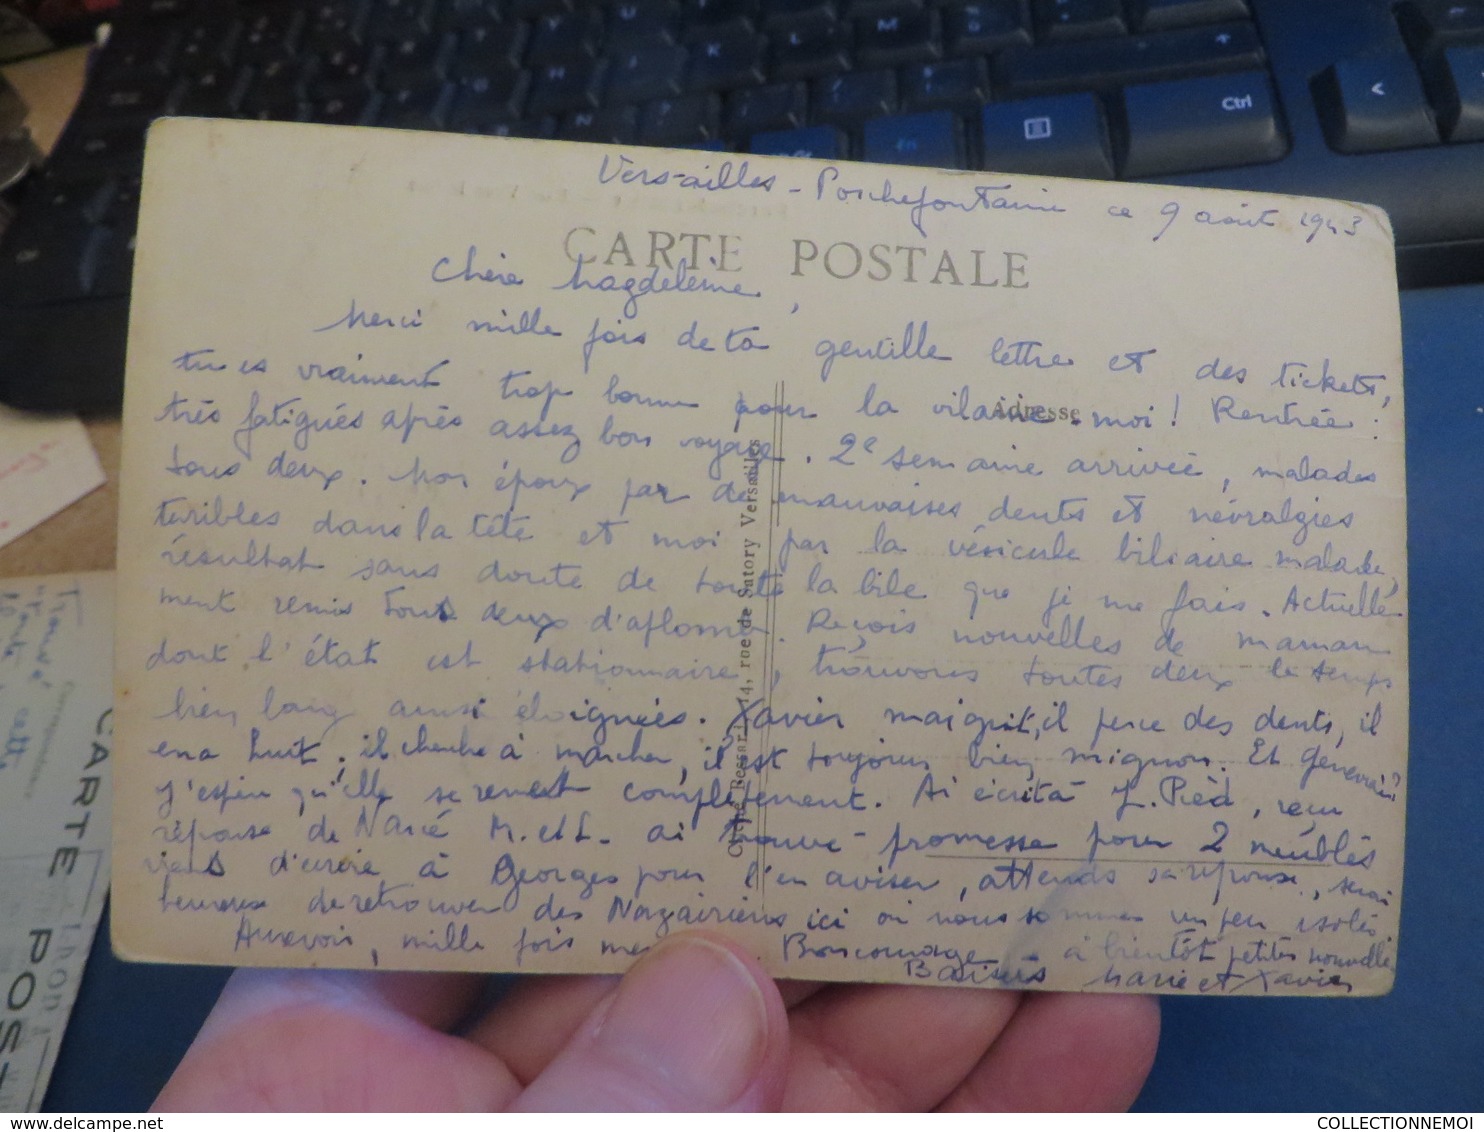 Versailles - Porchefontaine ce 9 août 1943
CARTE POSTALE
Chère Magdeleine,
Merci mille fois de ta gentille lettre et des tickets,
tu es vraiment trop bonne pour la vilaine moi! Rentrée :
Adresse
très fatigués après assez bon voyage. 2e semaine arrivée, malades
tous deux. Mon époux par de mauvaises dents et névralgies
terribles dans la tête et moi par la vésicule biliaire malade,
résultat sans doute de toute la bile que je me fais. Actuelle
ment remis tous deux d'aplomb. Reçois nouvelles de maman
dont l'état est stationnaire, trouvons toutes deux le temps
bien long ainsi éloignées. Xavier maigrit, il perce des dents, il
en a huit, il cherche à marcher, il est toujours bien mignon. Et Geneviève?
j'espère qu'elle se remet complètement. Ai écrit à L. Pied, reçu
réponse de M. et L. ai trouvé promesse pour 2 meublés
viens d'écrire à Georges pour l'en aviser, attends sa réponse, serai
heureuse de retrouver des Nazairiens ici où nous sommes un peu isolés
Aurevoir, mille fois Bon courage - à bientôt petites nouvelles
Baisers Marie et Xavier
rue de Satory Versailles
CARTE
POS
Ctrl
fn
COLLECTIONNEMOI